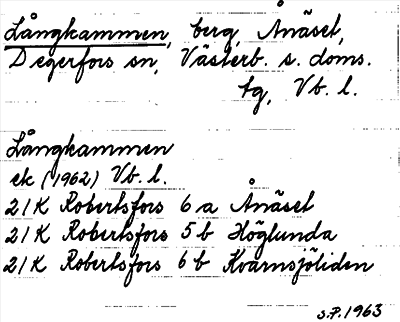 Långkammen, berg, Ånäset,
Degerfors sn, Västerb. s. doms.
tg, Vb. l.
Långkammen
ek (1962) Vb. l.
21K Robertsfors 6 a Ånäset
21K Robertsfors 5 b Höglunda
21K Robertsfors 6 b Kvarnsjöliden
S.P. 1963